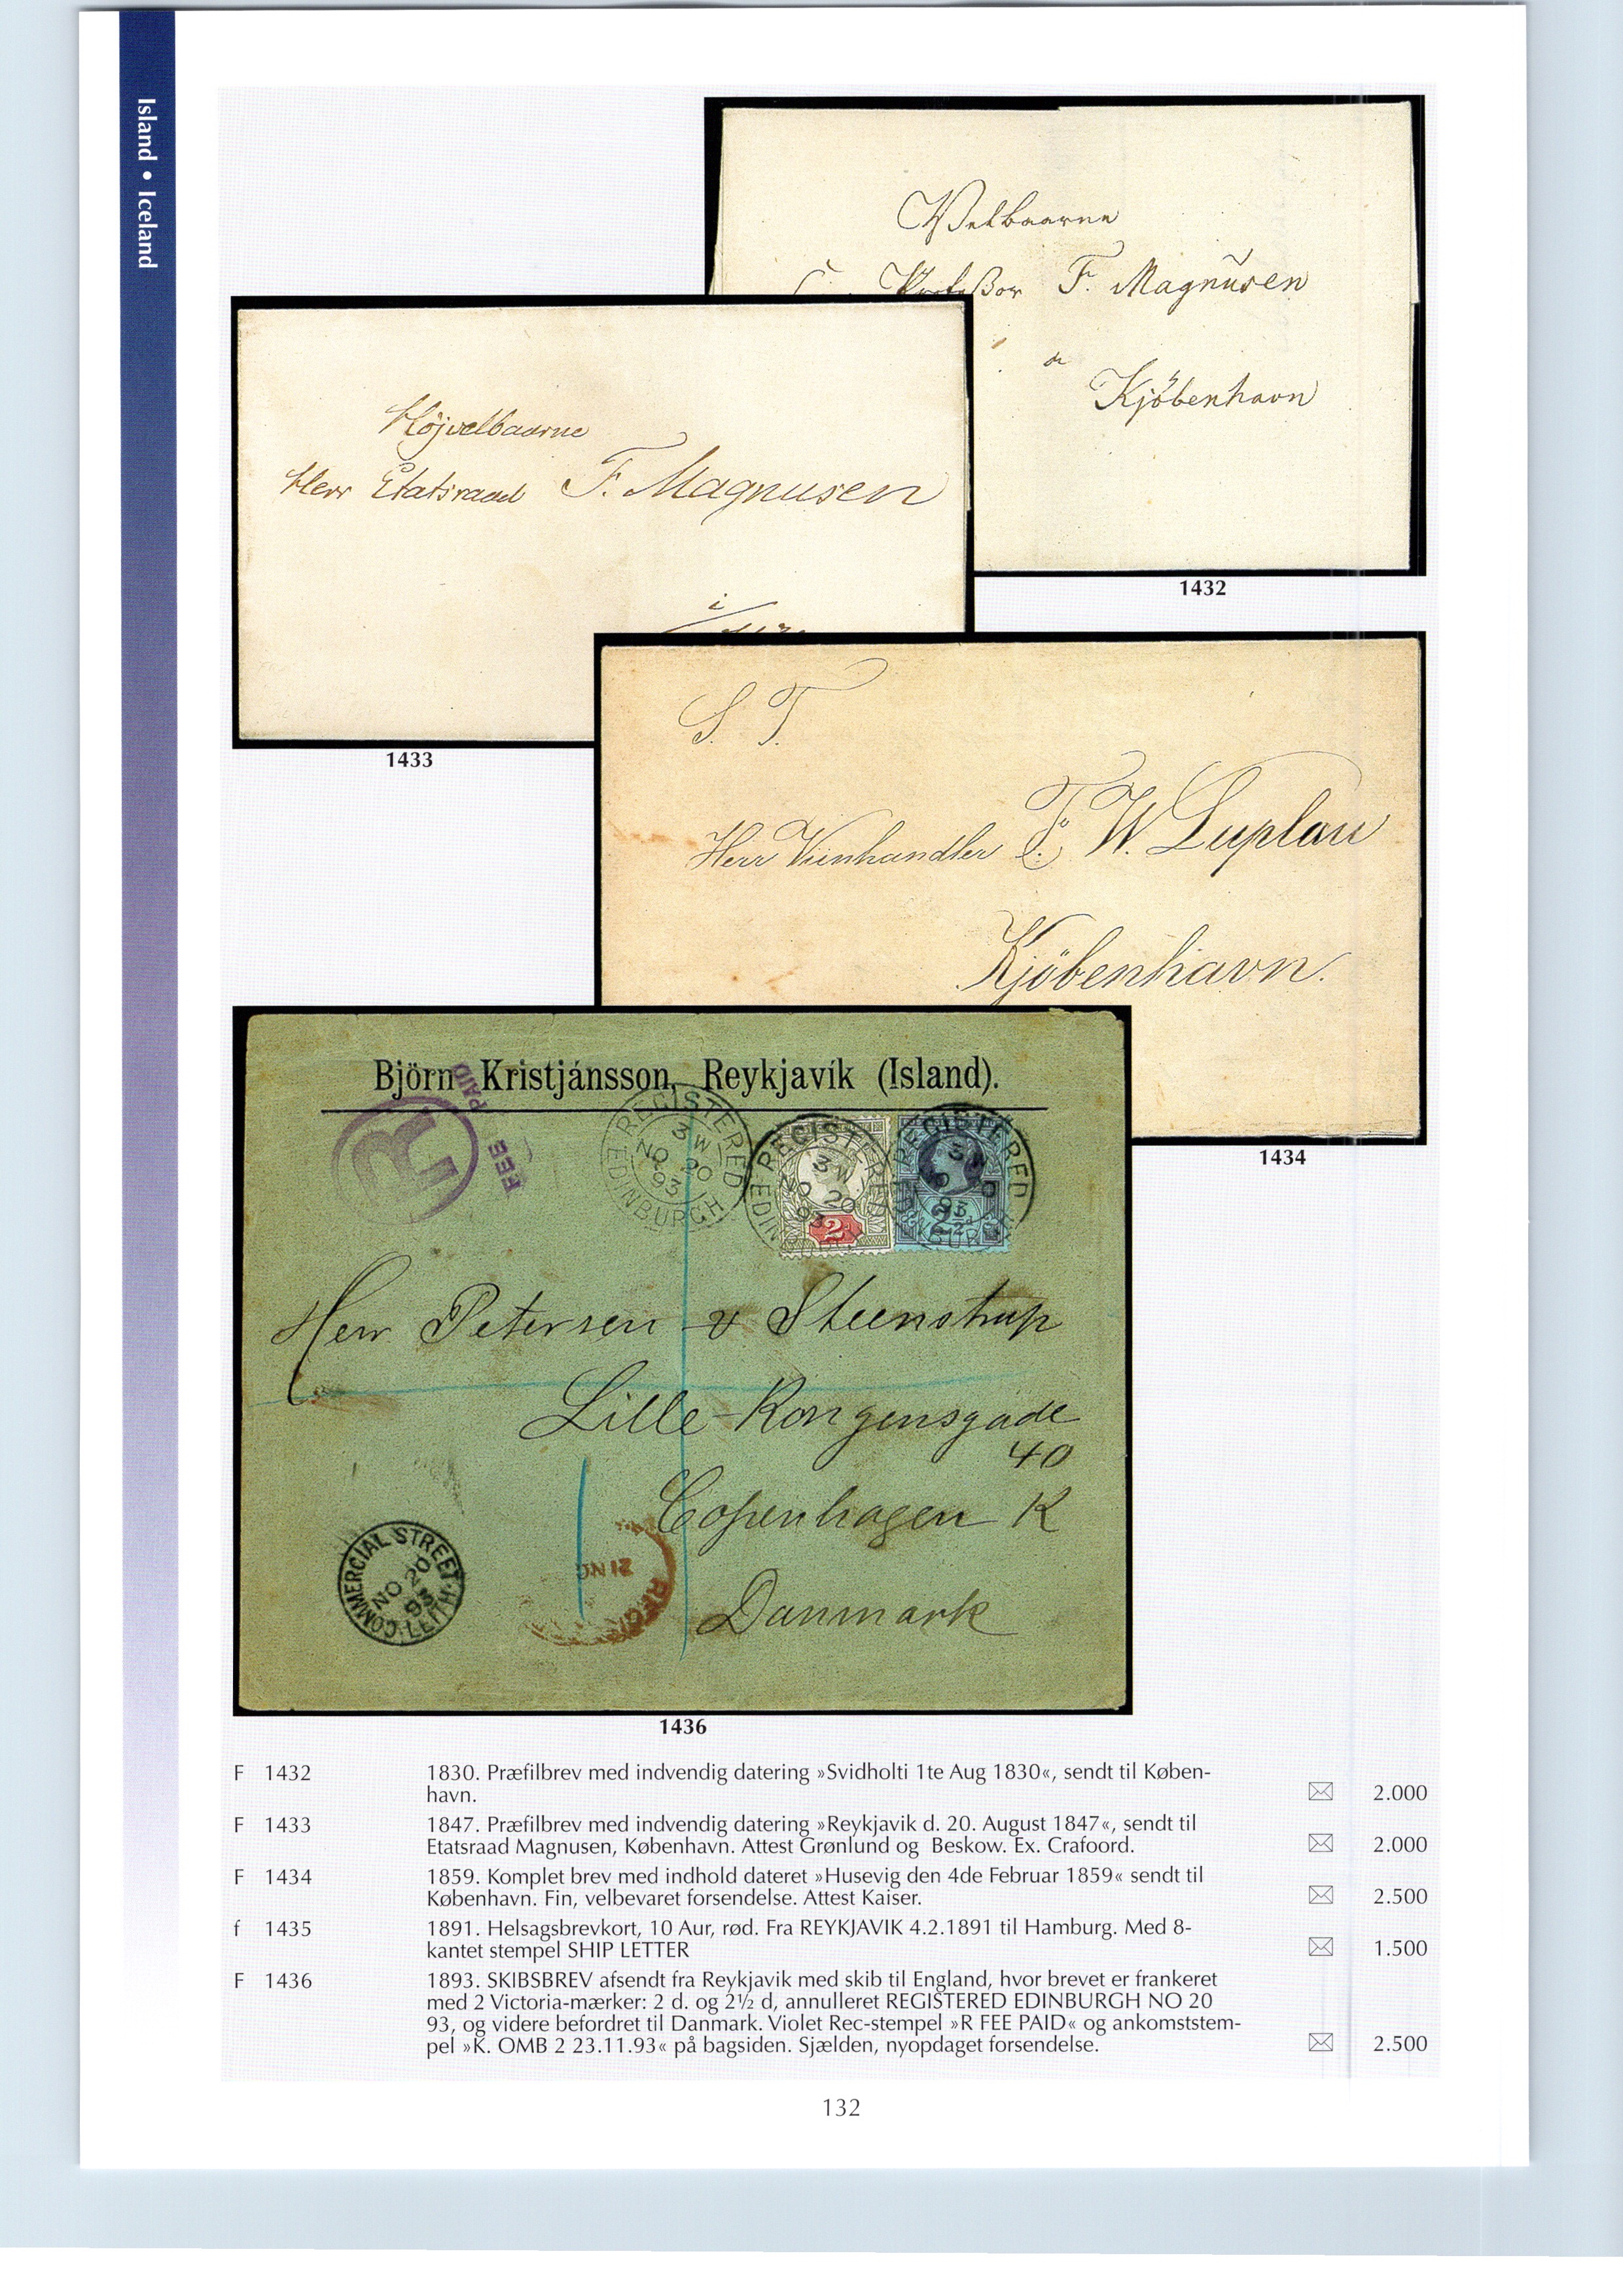 Island • Iceland
Velbaarne
Professor F. Magnusen
Kjöbenhavn
1432
Höjvelbaarne
Herr Etatsraad F. Magnusen
i
1433
S. T.
Herr Viinhandler F. W. Luplau
Kjöbenhavn.
1434
Björn Kristjánsson, Reykjavík (Island).
R
FEE PAID
REGISTERED
3 W
NO 20
93
EDINBURGH
REGISTERED
3 W
NO 20
93
EDINBURGH
2
REGISTERED
3 W
93
2½
Herr Petersen v Steenstrup
Lille-Kongensgade
40
Copenhagen K
Danmark
COMMERCIAL STREET
NO 20
93
LEITH
21 NO
REGIS
1436
F 1432 1830. Præfilbrev med indvendig datering »Svidholti 1te Aug 1830«, sendt til Køben-
havn. 2.000
F 1433 1847. Præfilbrev med indvendig datering »Reykjavik d. 20. August 1847«, sendt til
Etatsraad Magnusen, København. Attest Grønlund og Beskow. Ex. Crafoord. 2.000
F 1434 1859. Komplet brev med indhold dateret »Husevig den 4de Februar 1859« sendt til
København. Fin, velbevaret forsendelse. Attest Kaiser. 2.500
f 1435 1891. Helsagsbrevkort, 10 Aur, rød. Fra REYKJAVIK 4.2.1891 til Hamburg. Med 8-
kantet stempel SHIP LETTER 1.500
F 1436 1893. SKIBSBREV afsendt fra Reykjavik med skib til England, hvor brevet er frankeret
med 2 Victoria-mærker: 2 d. og 2½ d, annulleret REGISTERED EDINBURGH NO 20
93, og videre befordret til Danmark. Violet Rec-stempel »R FEE PAID« og ankomststem-
pel »K. OMB 2 23.11.93« på bagsiden. Sjælden, nyopdaget forsendelse. 2.500
132